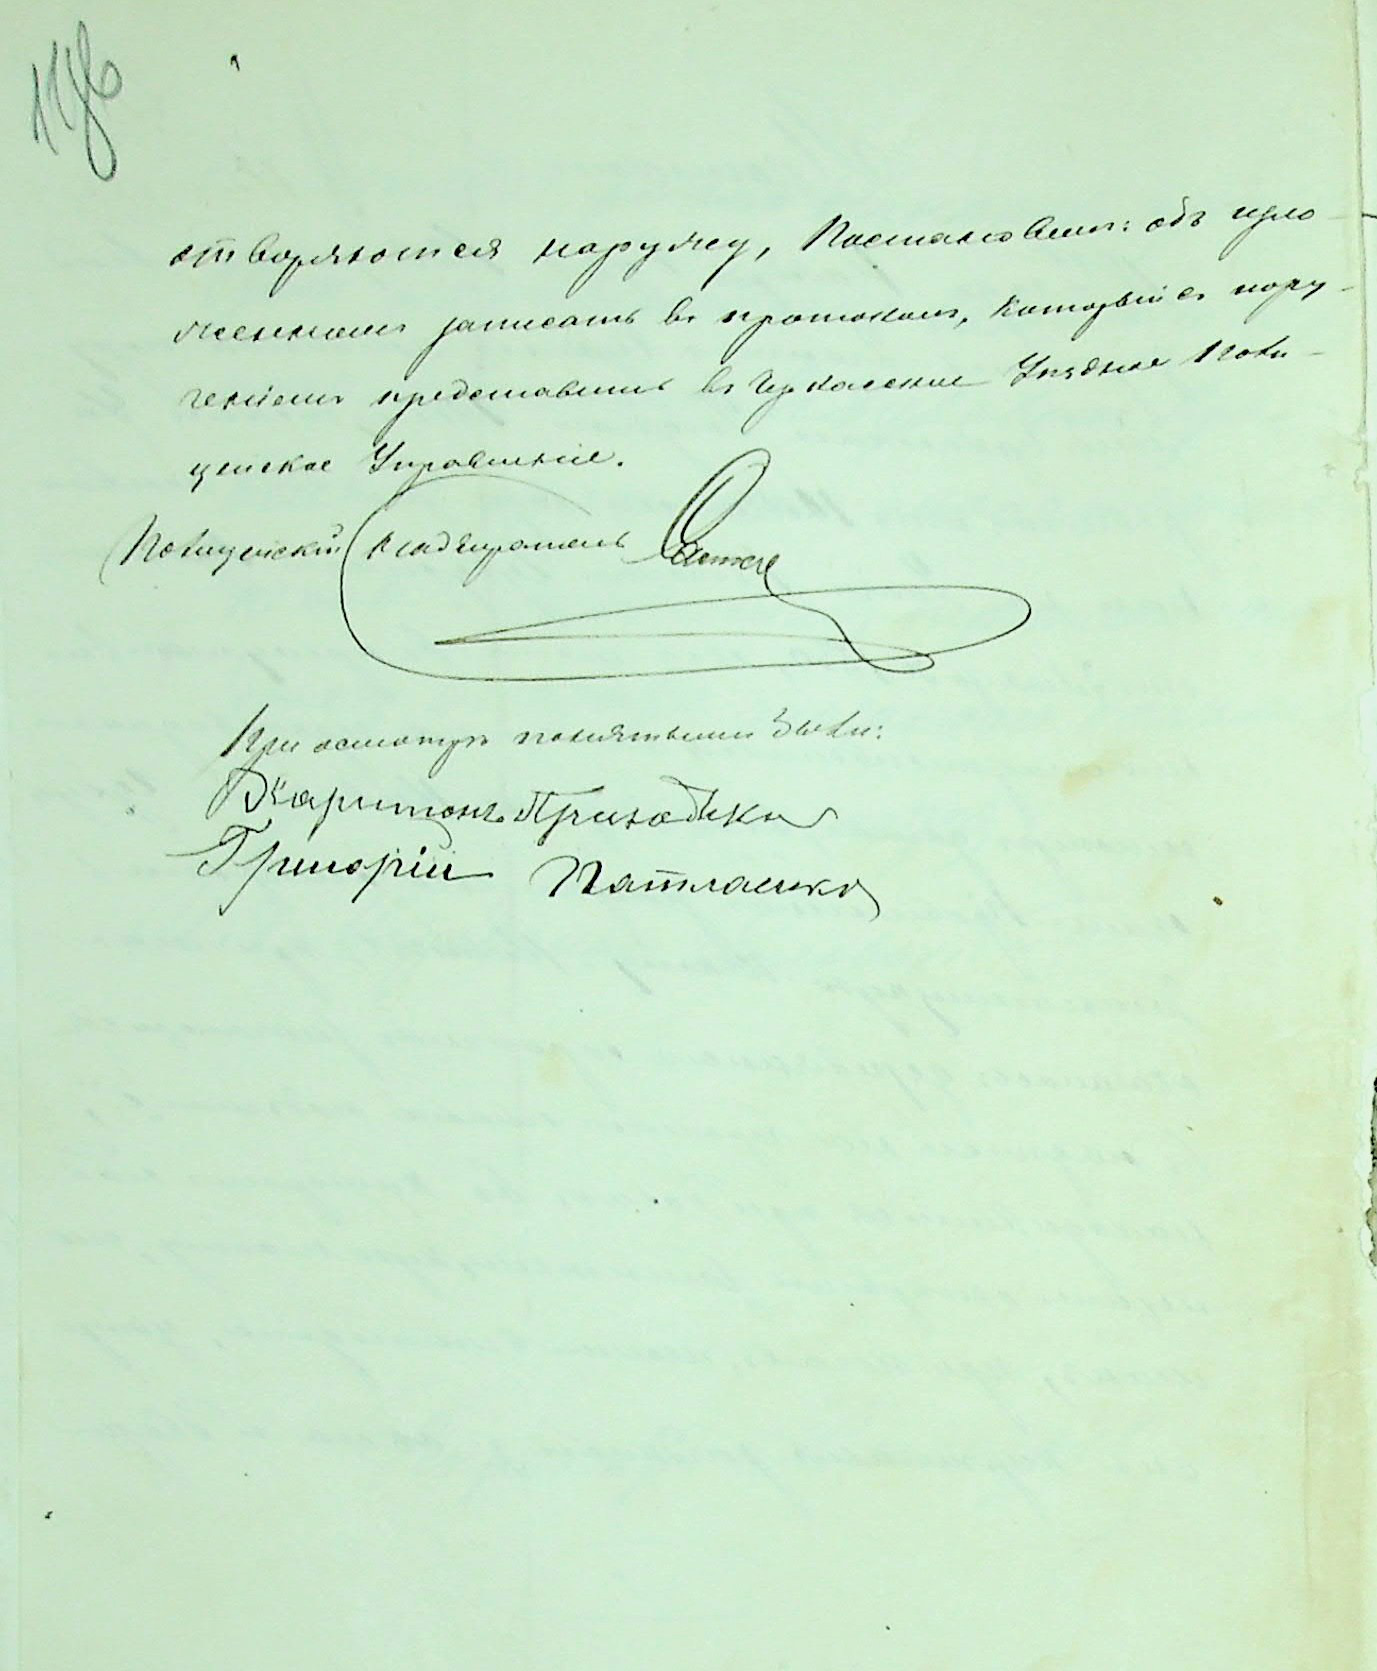 отворяются наружу, Постановилъ: объ изло-
женномъ записать въ протоколъ, который съ пору-
ченіемъ представить въ Черкаское Уѣздное Поли-
цейское Управленіе.
Полицейскій Надзиратель
При осмотрѣ понятыми были:
Харитонъ Приходько
Григорій Патлаенко